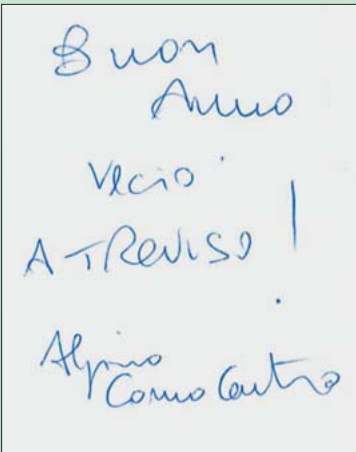 Buon
Anno
Vecio
A TREVISO !
Alpino
Como Centro